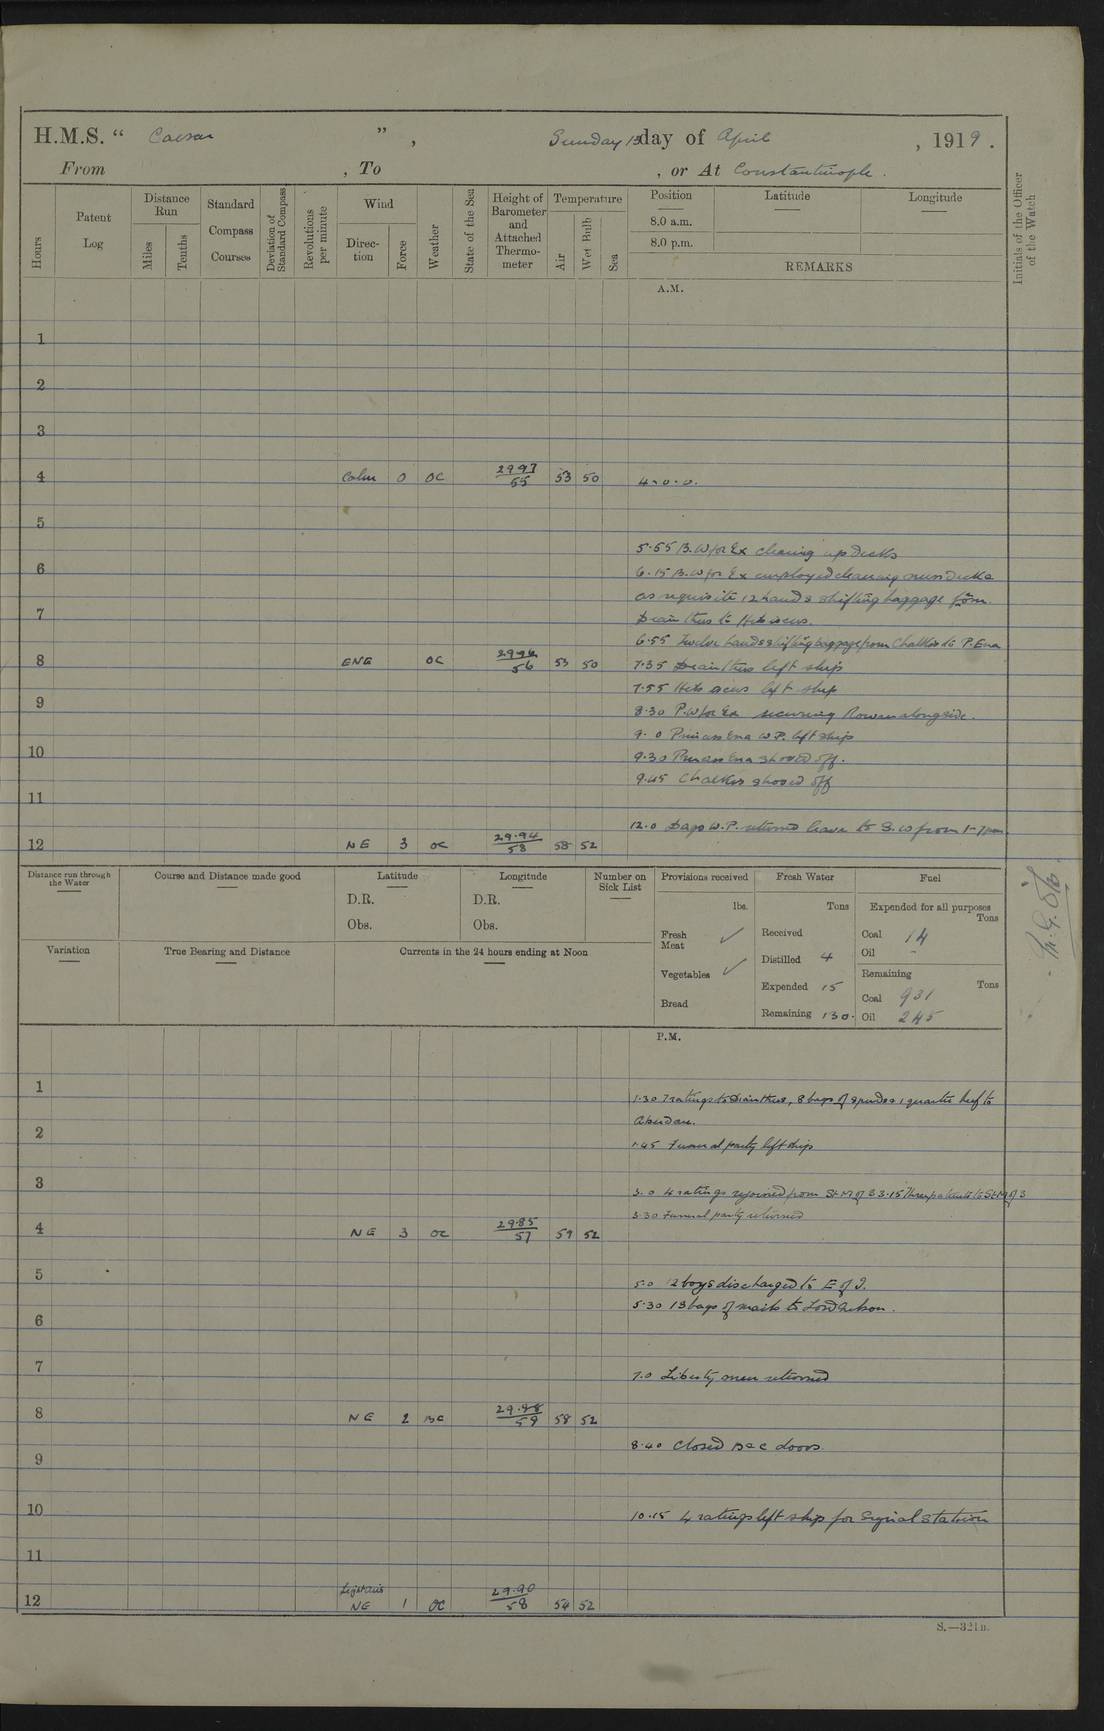 H.M.S. “ Caesar ” , Sunday 13 day of April , 1919 .
From , To , or At Constantinople .
Hours
Patent Log
Distance Run
Miles
Tenths
Standard Compass Courses
Deviation of Standard Compass
Revolutions per minute
Wind
Direc-tion
Force
Weather
State of the Sea
Height of Barometer and Attached Thermo-meter
Temperature
Air
Wet Bulb
Sea
Position Latitude Longitude
8.0 a.m.
8.0 p.m.
REMARKS
Initials of the Officer of the Watch
A.M.
1
2
3
4 Calm 0 OC 2997/55 53 50 4.0.0.
5
5.55 B. W for Ex cleaning up Decks
6 6.15 B. W for Ex employed cleaning mess Decks
as requisite 12 hands shifting baggage from
7 Dianthus to Hibiscus.
6.55 Twelve hands shifting baggage from Chalkis to P. Ena
8 ENE OC 2996/56 53 50 7.35 Dianthus left ship
7.55 Hibiscus left ship
9 8.30 P. W for Ex securing Rowan alongside.
9.0 Princess Ena W.P. left ship
10 9.30 Princess Ena shoved off.
9.45 Chalkis shoved off
11
12.0 W.P. returned leave to S.W from 1-7 pm
12 NE 3 OC 29.94/58 58 52
Distance run through the Water
Course and Distance made good
Latitude
D.R.
Obs.
Longitude
D.R.
Obs.
Number on Sick List
Provisions received
lbs.
Fresh Meat ✓
Vegetables ✓
Bread
Fresh Water
Tons
Received
Distilled 4
Expended 15
Remaining 130.
Fuel
Expended for all purposes
Tons
Coal 14
Oil -
Remaining
Tons
Coal 931
Oil 245
Variation
True Bearing and Distance
Currents in the 24 hours ending at Noon
P.M.
1
1.30 7 ratings to Dianthus, 8 bags of spuds 1 quarter beef to
2
1.45 Funeral party left ship
3 3.0 4 ratings rejoined from St. M of S 3.15 Three patients to St. M of S
3.30 Funeral party returned
4 NE 3 OC 29.85/57 59 52
5 5.0 12 boys discharged to E of I.
5.30 13 bags of mails to Lord Nelson.
6
7 7.0 Liberty men returned
8 NE 2 BC 29.88/59 58 52
8.40 Closed B & C doors
9
10 10.15 4 ratings left ship for Signal Station
11
12 Light airs NE 1 OC 29.90/58 54 52
S.—321B.